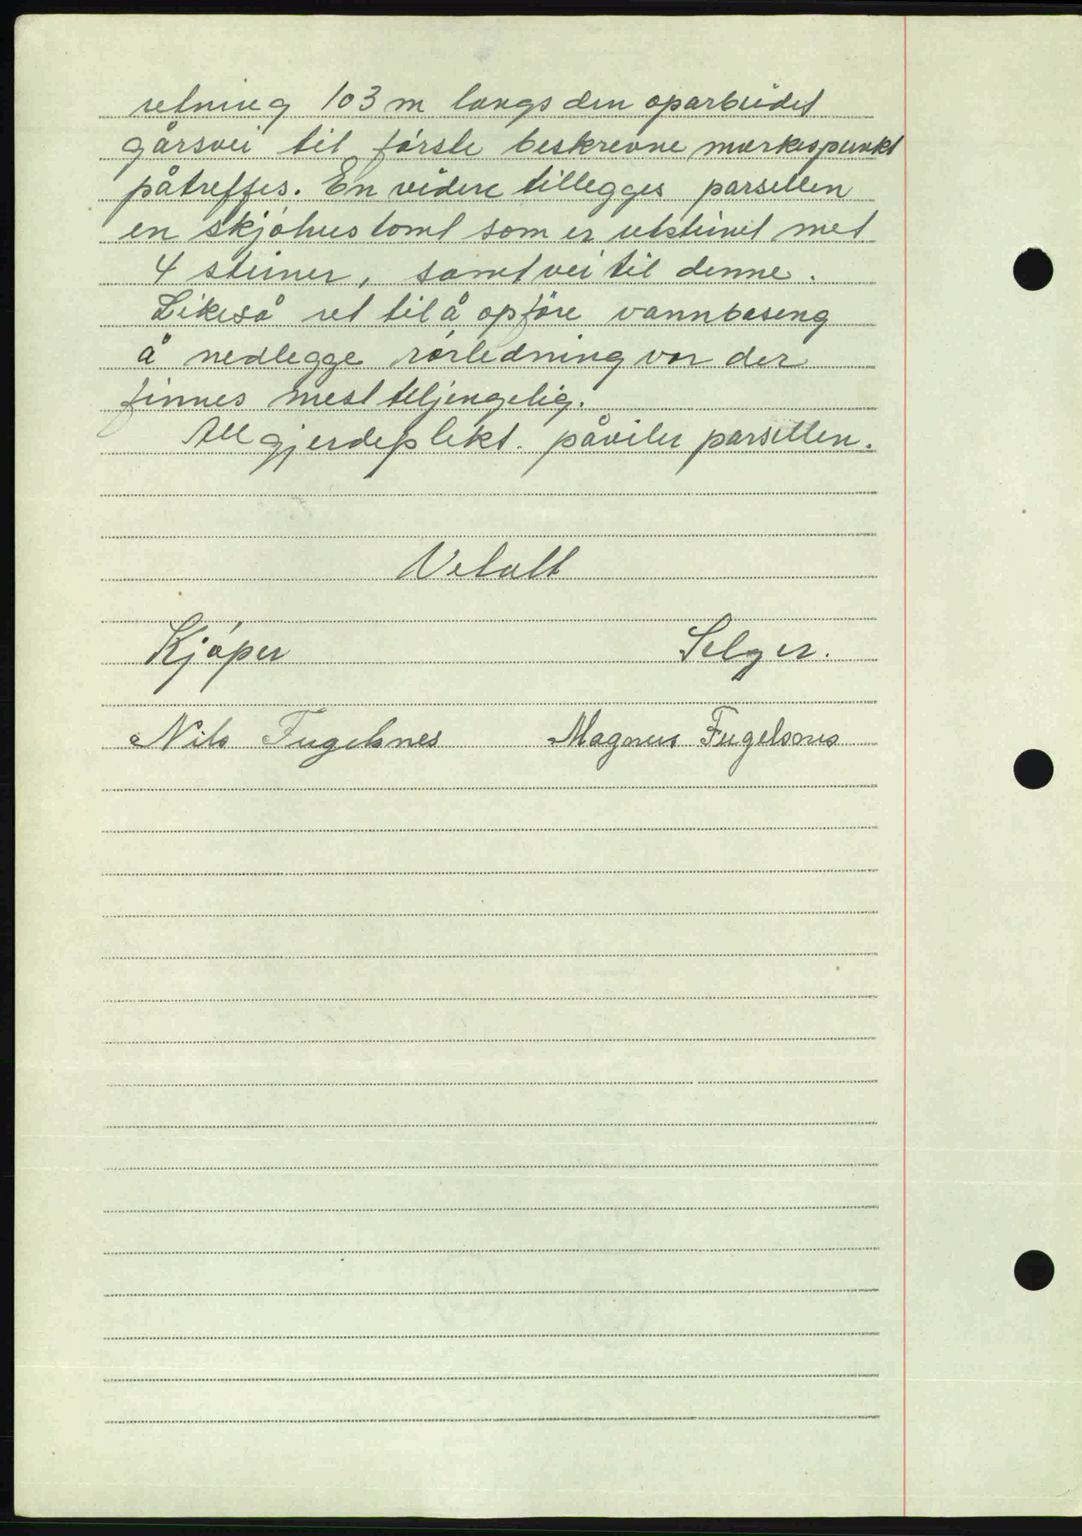 retning 103 m langs den oparbeidet
gårsvei til første beskrevne merkespunkt
påtreffes. En videre tillegges parsellen
en skjøhustomt som er utsteinet met
4 steiner, samt vei til denne.
Likeså ret til å opføre vannbaseng
å nedlegge rørledning vor der
finnes mest tiljengelig.
All gjerdeplikt. påviler parsellen.
Vetatt
Kjøper Selger.
Nils Fugelsnes Magnus Fugelsnes